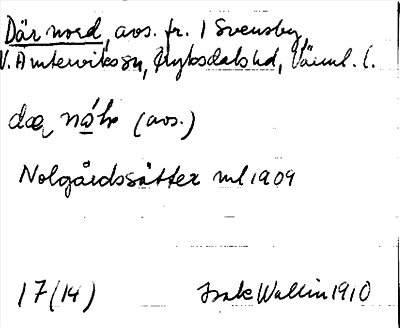 Där nord, avs. fr. 1 Svensby,
V. Ämterviks sn, Fryksdals hd, Värml. l.
dæ̨ (avs.)
Nolgårdssätter ml 1909
17(14) Isak Wallin 1910